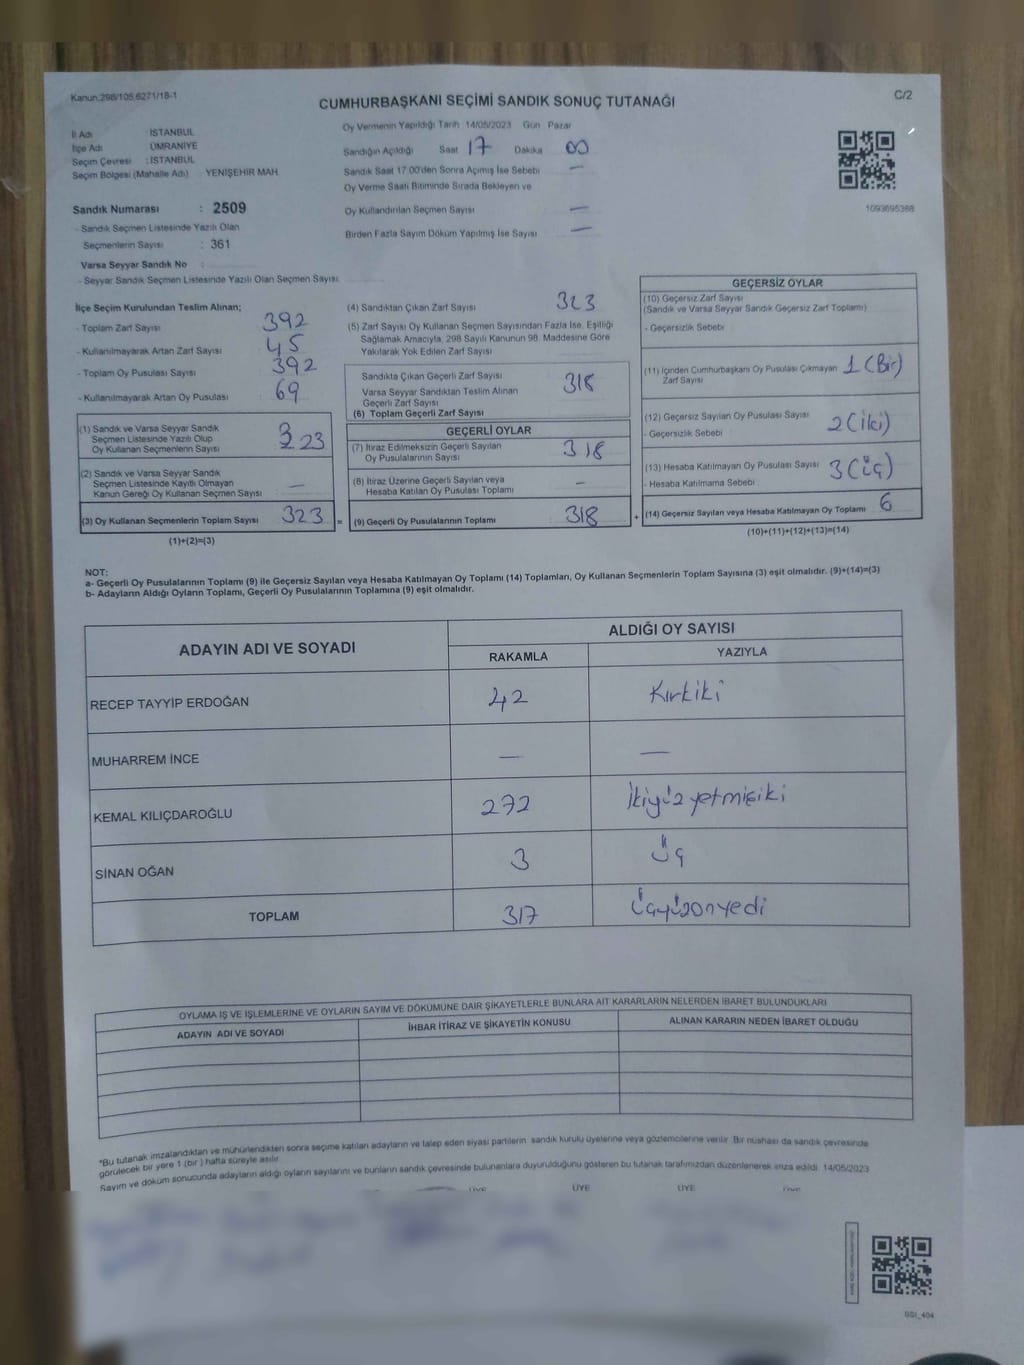 Kanun:298/105,6271/18-1
CUMHURBAŞKANI SEÇİMİ SANDIK SONUÇ TUTANAĞI
C/2
Oy Vermenin Yapıldığı Tarih 14/05/2023 Gün Pazar
İl Adı : İSTANBUL
İlçe Adı ÜMRANİYE
Seçim Çevresi : İSTANBUL
Seçim Bölgesi (Mahalle Adı) YENİŞEHİR MAH
Sandığın Açıldığı Saat 17 Dakika 00
Sandık Saat 17.00'den Sonra Açımış İse Sebebi —
Oy Verme Saati Bitiminde Sırada Bekleyen ve
Oy Kullandırılan Seçmen Sayısı —
Birden Fazla Sayım Döküm Yapılmış İse Sayısı —
1093695368
Sandık Numarası : 2509
- Sandık Seçmen Listesinde Yazılı Olan
Seçmenlerin Sayısı : 361
Varsa Seyyar Sandık No :
- Seyyar Sandık Seçmen Listesinde Yazılı Olan Seçmen Sayısı:
İlçe Seçim Kurulundan Teslim Alınan;
- Toplam Zarf Sayısı 392
- Kullanılmayarak Artan Zarf Sayısı 45
- Toplam Oy Pusulası Sayısı 392
- Kullanılmayarak Artan Oy Pusulası 69
(1) Sandık ve Varsa Seyyar Sandık
Seçmen Listesinde Yazılı Olup
Oy Kullanan Seçmenlerin Sayısı 323
(2) Sandık ve Varsa Seyyar Sandık
Seçmen Listesinde Kayıtlı Olmayan
Kanun Gereği Oy Kullanan Seçmen Sayısı —
(3) Oy Kullanan Seçmenlerin Toplam Sayısı 323
(1)+(2)=(3)
=
(4) Sandıktan Çıkan Zarf Sayısı 323
(5) Zarf Sayısı Oy Kullanan Seçmen Sayısından Fazla İse, Eşitliği
Sağlamak Amacıyla, 298 Sayılı Kanunun 98. Maddesine Göre
Yakılarak Yok Edilen Zarf Sayısı
Sandıkta Çıkan Geçerli Zarf Sayısı 318
Varsa Seyyar Sandıktan Teslim Alınan
Geçerli Zarf Sayısı
(6) Toplam Geçerli Zarf Sayısı
GEÇERLİ OYLAR
(7) İtiraz Edilmeksizin Geçerli Sayılan
Oy Pusulalarının Sayısı 318
(8) İtiraz Üzerine Geçerli Sayılan veya
Hesaba Katılan Oy Pusulası Toplamı —
(9) Geçerli Oy Pusulalarının Toplamı 318
+
GEÇERSİZ OYLAR
(10) Geçersiz Zarf Sayısı
(Sandık ve Varsa Seyyar Sandık Geçersiz Zarf Toplamı)
- Geçersizlik Sebebi
(11) İçinden Cumhurbaşkanı Oy Pusulası Çıkmayan 1 (Bir)
Zarf Sayısı
(12) Geçersiz Sayılan Oy Pusulası Sayısı 2 (iki)
- Geçersizlik Sebebi
(13) Hesaba Katılmayan Oy Pusulası Sayısı 3 (üç)
- Hesaba Katılmama Sebebi
(14) Geçersiz Sayılan veya Hesaba Katılmayan Oy Toplamı 6
(10)+(11)+(12)+(13)=(14)
NOT:
a- Geçerli Oy Pusulalarının Toplamı (9) ile Geçersiz Sayılan veya Hesaba Katılmayan Oy Toplamı (14) Toplamları, Oy Kullanan Seçmenlerin Toplam Sayısına (3) eşit olmalıdır. (9)+(14)=(3)
b- Adayların Aldığı Oyların Toplamı, Geçerli Oy Pusulalarının Toplamına (9) eşit olmalıdır.
ADAYIN ADI VE SOYADI
ALDIĞI OY SAYISI
RAKAMLA YAZIYLA
RECEP TAYYİP ERDOĞAN 42 Kırkiki
MUHARREM İNCE — —
KEMAL KILIÇDAROĞLU 272 İkiyüz yetmişiki
SİNAN OĞAN 3 Üç
TOPLAM 317 Üçyüzonyedi
OYLAMA İŞ VE İŞLEMLERİNE VE OYLARIN SAYIM VE DÖKÜMÜNE DAİR ŞİKAYETLERLE BUNLARA AİT KARARLARIN NELERDEN İBARET BULUNDUKLARI
ADAYIN ADI VE SOYADI İHBAR İTİRAZ VE ŞİKAYETİN KONUSU ALINAN KARARIN NEDEN İBARET OLDUĞU
*Bu tutanak imzalandıktan ve mühürlendikten sonra seçime katılan adayların ve talep eden siyasi partilerin sandık kurulu üyelerine veya gözlemcilerine verilir. Bir nüshası da sandık çevresinde
görülecek bir yere 1 (bir ) hafta süreyle asılır.
Sayım ve döküm sonucunda adayların aldığı oyların sayılarını ve bunların sandık çevresinde bulunanlara duyurulduğunu gösteren bu tutanak tarafımızdan düzenlenerek imza edildi. 14/05/2023
ÜYE ÜYE ÜYE ÜYE
GSI_404